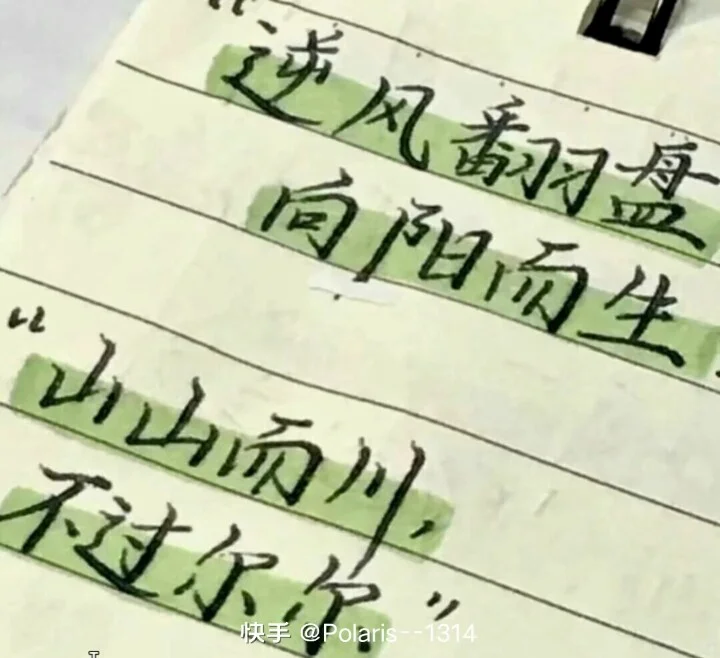 “逆风翻盘
向阳而生
“山山而川,
不过尔尔.”
快手 @Polaris--1314